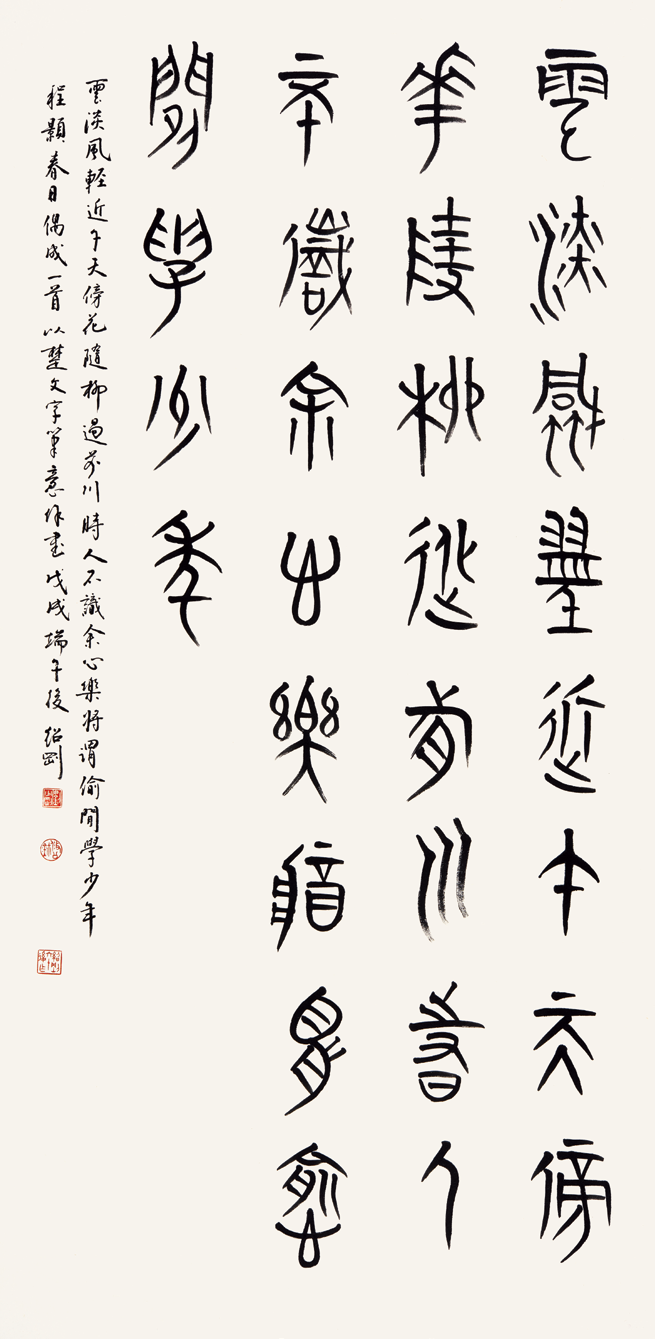 雲淡風輕近午天傍
花隨柳過前川時人
不識余心樂將謂偷
閒學少年
雲淡風輕近午天傍花隨柳過前川時人不識余心樂將謂偷閒學少年
程顥春日偶成一首以楚文字筆意作書戊戌端午後紹剛